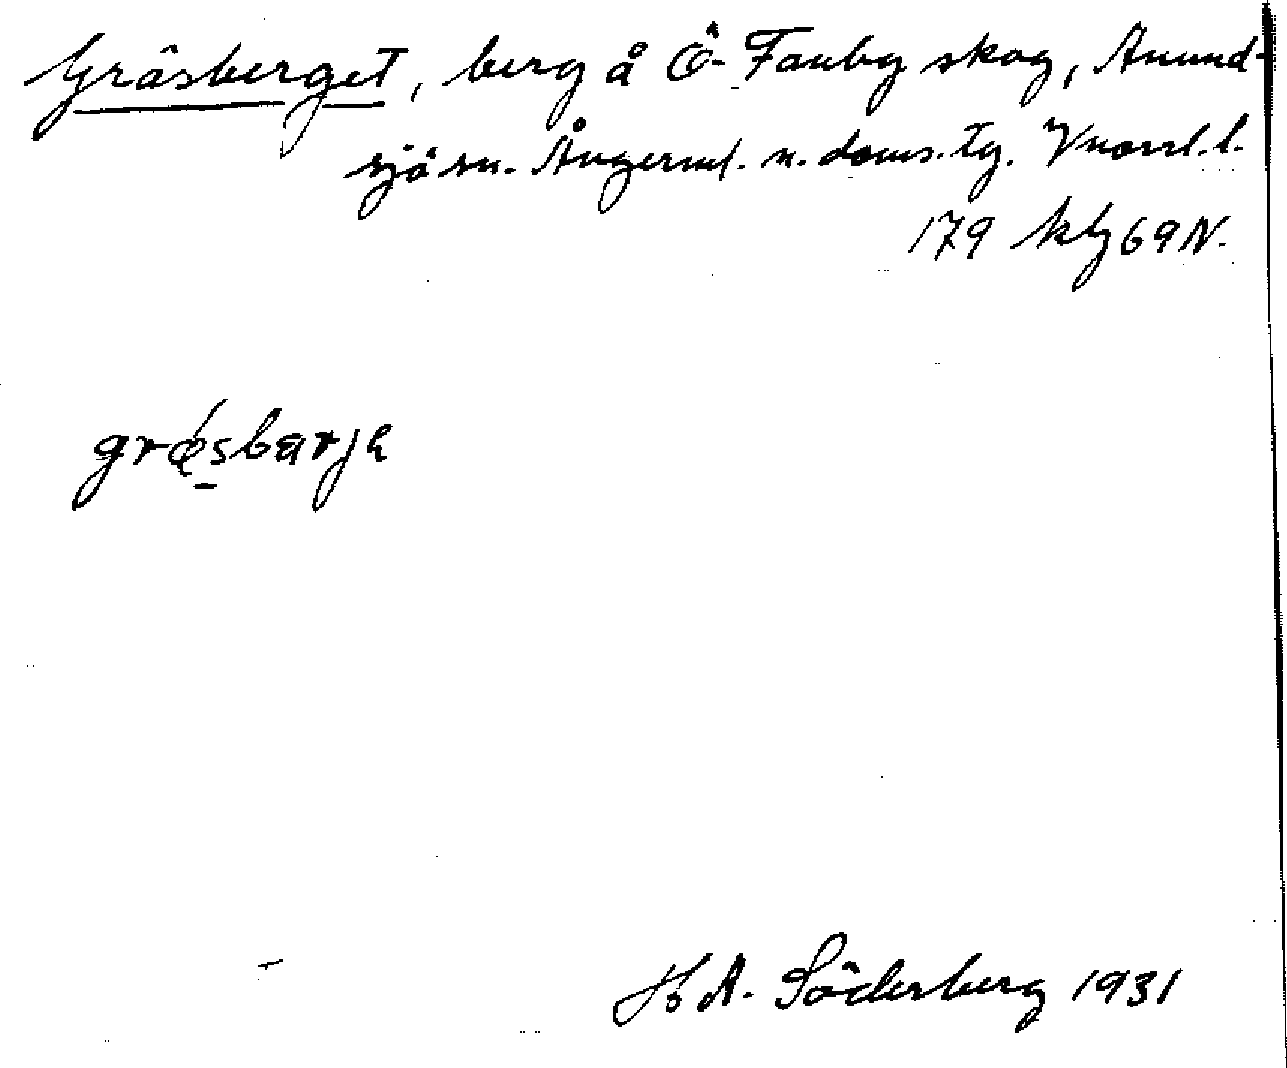 Gräsberget, berg å Ö. Fanby skog, Anund-
sjö sn. Ångerml. n. doms. tg. Vnorrl. l.
179 kly 69N.
græ´sbærje
H A. Söderberg 1931